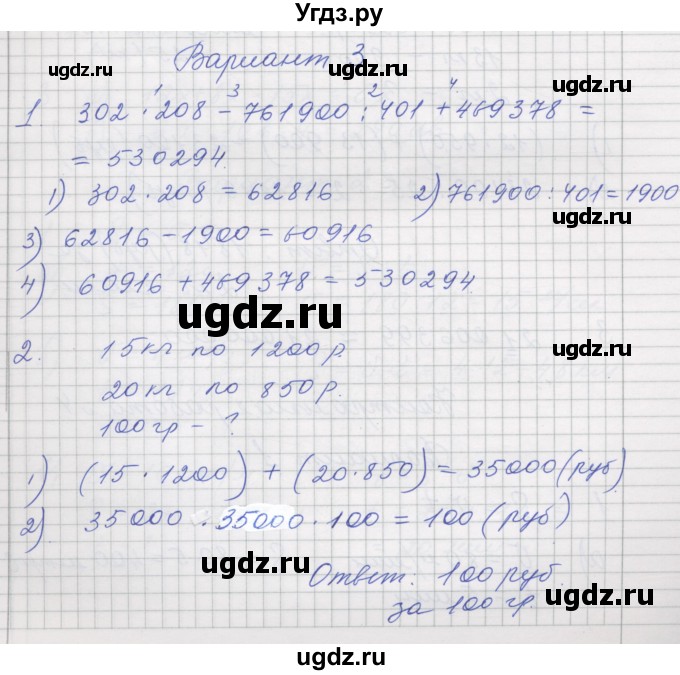 Угдз.ру
Вариант 3
ugdz.ru ugdz.ru
1 3 2 4
1 302 · 208 - 761900 : 401 + 469378 =
= 530294.
1) 302 · 208 = 62816 2) 761900 : 401 = 1900
3) 62816 - 1900 = 60916
4) 60916 + 469378 = 530294.
ugdz.ru
2. 15кг по 1200р. ugdz.ru
20кг по 850р.
100гр - ?
1) (15 · 1200) + (20 · 850) = 35000 (руб)
2) 35000 · 35000 · 100 = 100 (руб)
ugdz.ru
Ответ: 100 руб.
за 100 гр.
ugdz.ru
ugdz.ru